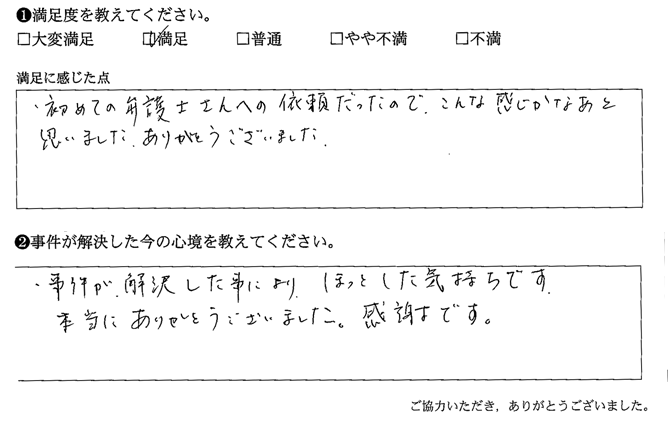 ❶満足度を教えてください。
□大変満足 ☑満足 □普通 □やや不満 □不満
満足に感じた点
・初めての弁護士さんへの依頼だったので、こんな感じかなあと
思いました。ありがとうございました。
❷事件が解決した今の心境を教えてください。
・事件が、解決した事により、ほっとした気持ちです。
本当にありがとうございました。感謝です。
ご協力いただき，ありがとうございました。